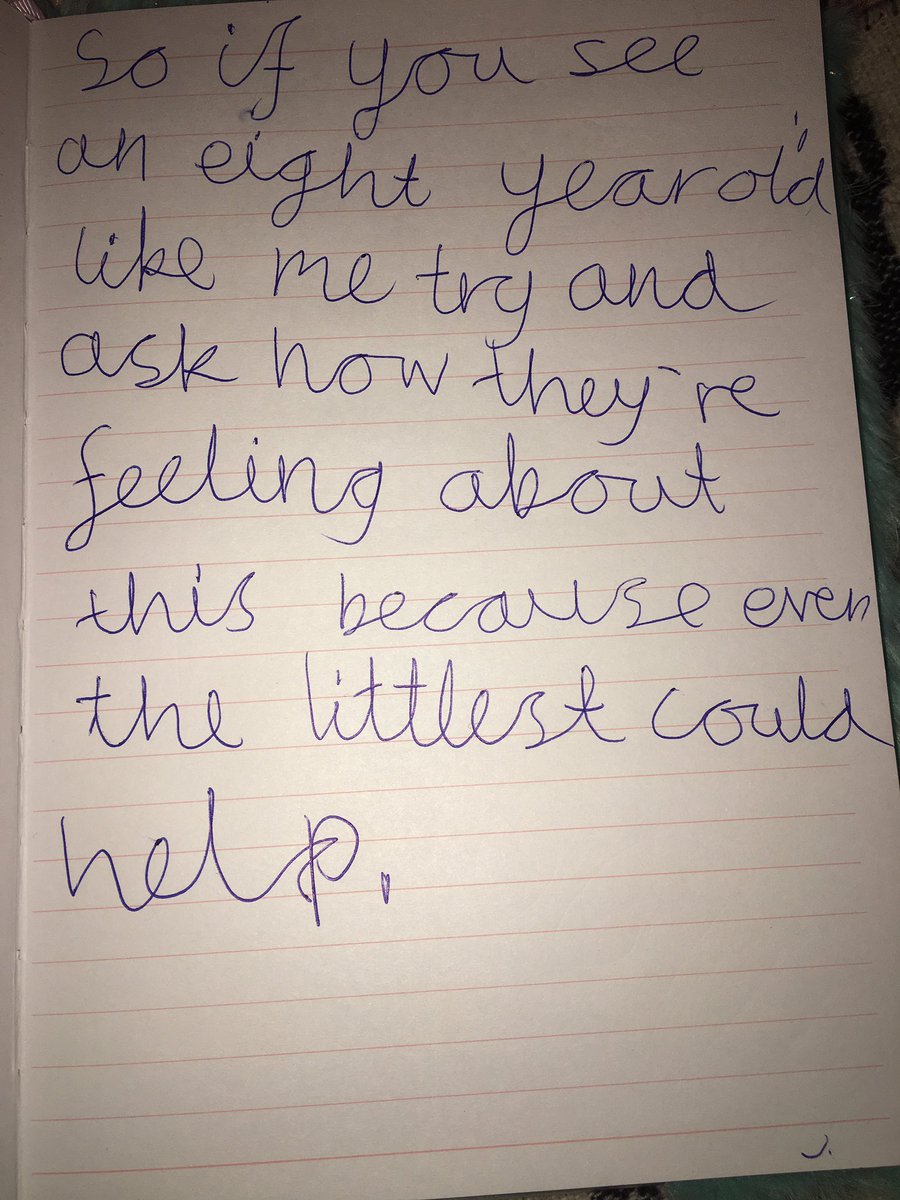 So if you see
an eight year old
like me try and
ask how they're
feeling about
this because even
the littlest could
help.